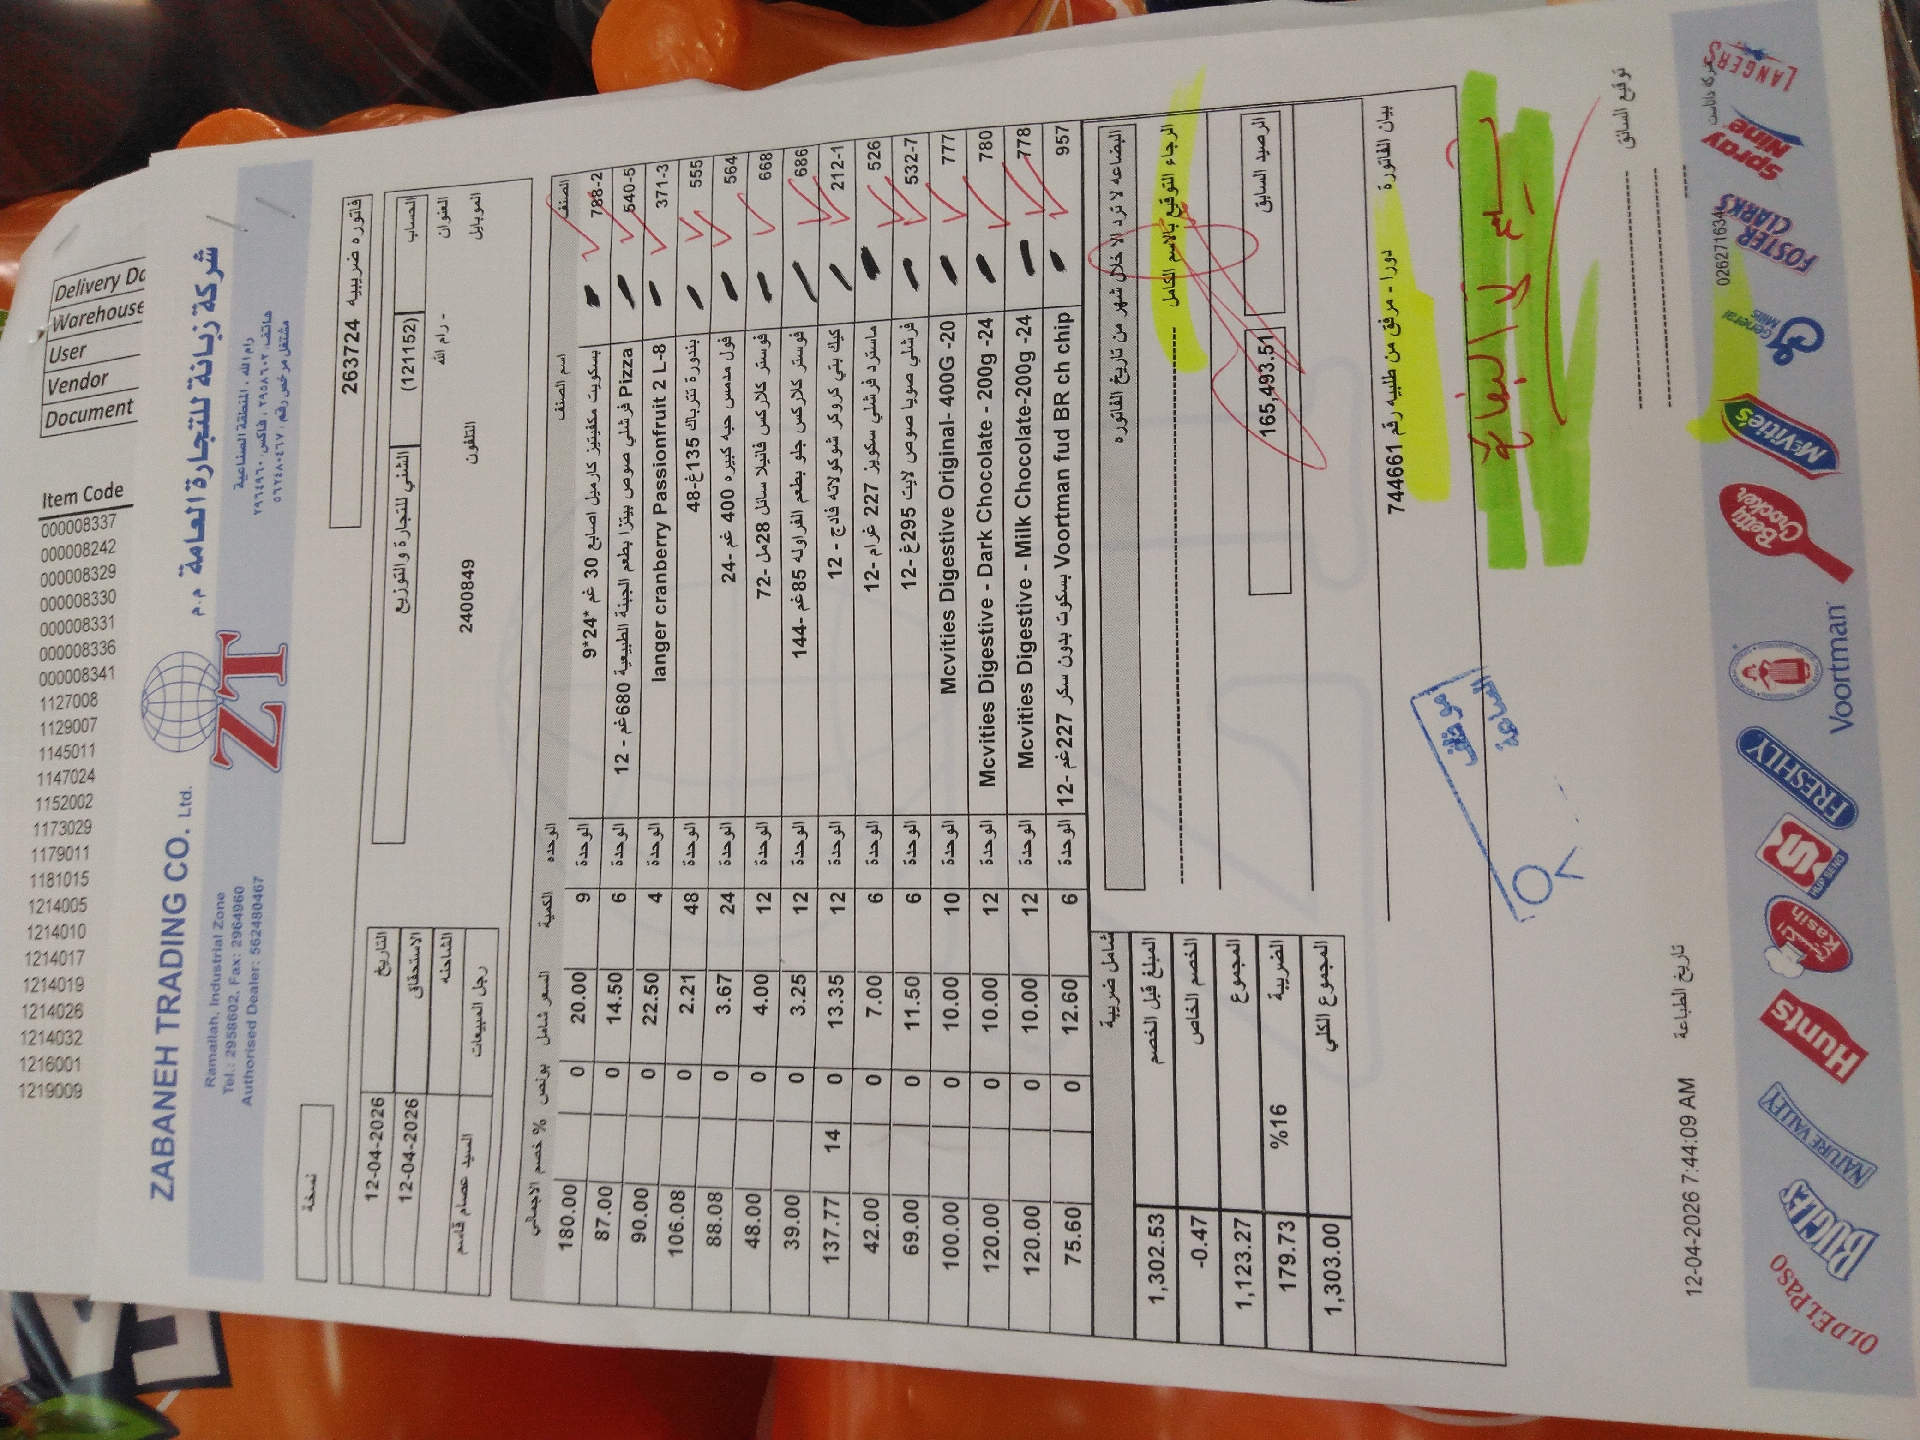 Delivery Do
Warehouse
User
Vendor
Document
Item Code
000008337
000008242
000008329
000008330
000008331
000008336
000008341
1127008
1129007
1145011
1147024
1152002
1173029
1179011
1181015
1214005
1214010
1214017
1214019
1214026
1214032
1216001
1219009
ZABANEH TRADING CO. Ltd.
شركة زبانة للتجارة العامة م.م
Ramallah, Industrial Zone
Tel.: 2958602, Fax: 2964960
Authorised Dealer: 562480467
ZT
رام الله ، المنطقة الصناعية
هاتف: ٢٩٥٨٦٠٢ ، فاكس: ٢٩٦٤٩٦٠
مشتغل مرخص رقم: ٥٦٢٤٨٠٤٦٧
نسخة
فاتوره ضريبيه 263724
الحساب (121152) الشني للتجارة والتوزيع
التاريخ 12-04-2026
العنوان - رام الله
الاستحقاق 12-04-2026
الموبايل التلفون 2400849
الشاحنه
رجل المبيعات السيد عصام قاسم
الصنف اسم الصنف الوحده الكمية السعر شامل بونص % خصم الاجمالي
788-2 بسكويت مكفيتيز كارميل اصابع 30 غم *24*9 الوحدة 9 20.00 0 180.00
540-5 فرشلي صوص بيتزا بطعم الجبنة الطبيعية 680غم - 12 Pizza الوحدة 6 14.50 0 87.00
371-3 langer cranberry Passionfruit 2 L-8 الوحدة 4 22.50 0 90.00
555 بندورة تترباك 135غ-48 الوحدة 48 2.21 0 106.08
564 فول مدمس حبه كبيره 400 غم -24 الوحدة 24 3.67 0 88.08
668 فوستر كلاركس فانيلا سائل 28مل -72 الوحدة 12 4.00 0 48.00
686 فوستر كلاركس جلو بطعم الفراوله 85غم -144 الوحدة 12 3.25 0 39.00
212-1 كيك بتي كروكر شوكولاته فادج - 12 الوحدة 12 13.35 0 14 137.77
526 ماسترد فرشلي سكويز 227 غرام -12 الوحدة 6 7.00 0 42.00
532-7 فرشلي صويا صوص لايت 295غ -12 الوحدة 6 11.50 0 69.00
777 Mcvities Digestive Original- 400G -20 الوحدة 10 10.00 0 100.00
780 Mcvities Digestive - Dark Chocolate - 200g -24 الوحدة 12 10.00 0 120.00
778 Mcvities Digestive - Milk Chocolate-200g -24 الوحدة 12 10.00 0 120.00
957 Voortman fud BR ch chip بسكوت بدون سكر 227غم -12 الوحدة 6 12.60 0 75.60
البضاعه لا ترد الا خلال شهر من تاريخ الفاتوره
شامل ضريبية
الرجاء التوقيع بالاسم الكامل
المبلغ قبل الخصم 1,302.53
الخصم الخاص -0.47
الرصيد السابق 165,493.51
المجموع 1,123.27
الضريبة %16 179.73
المجموع الكلي 1,303.00
بيان الفاتورة دورا - مرفق من طلبيه رقم 744661
موقف
الساعة
توقيع السائق
تاريخ الطباعة 12-04-2026 7:44:09 AM
022671634
OLD EL PASO
BUGLES
NATURE VALLEY
Hunts
Kasih
HUP SENG
FRESHLY
Voortman
Betty Crocker
McVitie's
General Mills
FOSTER CLARKS
Spray Nine
LANGERS